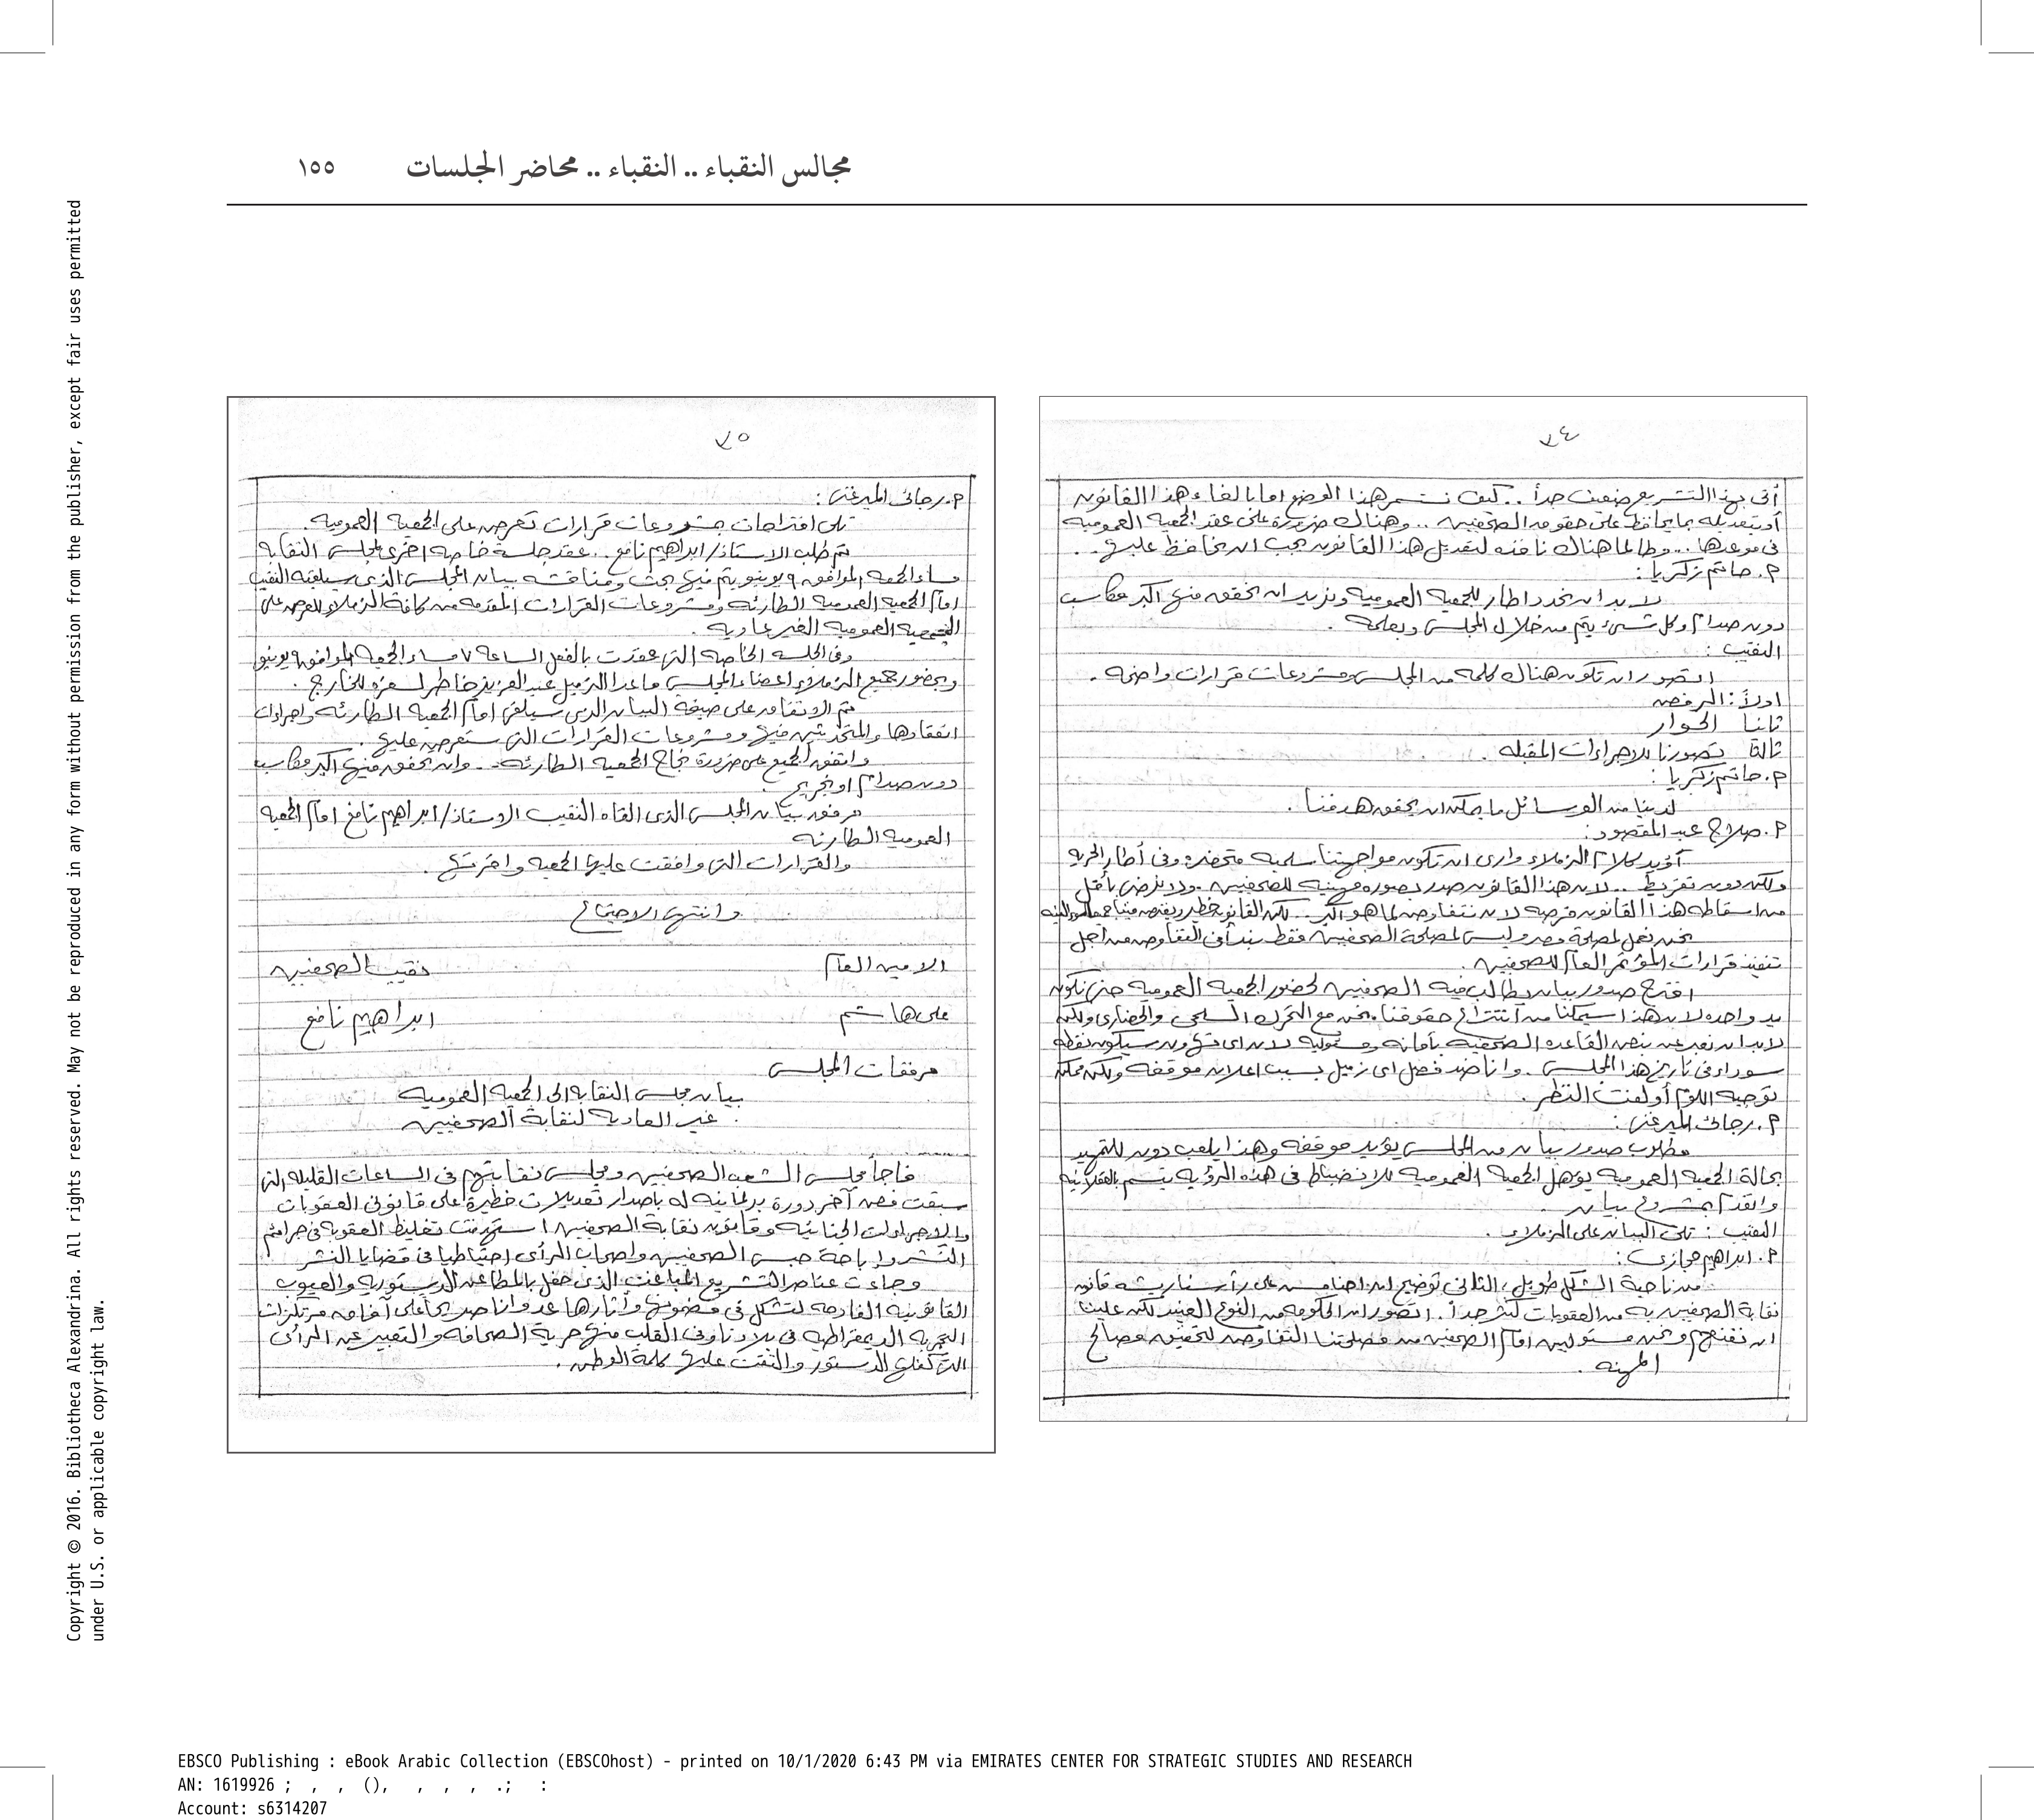 مجالس النقباء .. النقباء .. محاضر الجلسات ١٥٥
٧٤
أتى بهذا التشريع ضعيف جداً .. كيف نستمر هذا الوضع اما بالغاء هذا القانون
أو بتعديله بما يحافظ على حقوق الصحفيين .. وهناك ضرورة على عقد الجمعيه العموميه
فى موعدها .. وطالما هناك نافذه لتعديل هذا القانون يجب ان نحافظ عليها ..
م. حاتم زكريا :
لا بد ان نحدد اطار للجمعيه العموميه ونريد ان نحقق منها اكبر مكاسب
دون صدام وكل شىء يتم من خلال المجلس وبعلمه .
النقيب :
اتصور ان تكون هناك كلمه من المجلس ومشروعات قرارات واضحه .
اولاً : الرفض
ثانيا الحوار
ثالثا تصورنا للاجراءات المقبله .
م. حاتم زكريا :
لدينا من الوسائل ما يمكن ان يحقق هدفنا .
م. صلاح عبد المقصود :
أؤيد كلام الزملاء وارى ان تكون مواجهتنا سلميه متحضره وفى أطار الحريه
ولكن دون تفريط .. لان هذا القانون صدر بصوره مهينه للصحفيين .. ولا نرضى بأقل
من اسقاط هذا القانون فرصه لان نتفاوض لما هو أكبر .. لكن القانون خطير
نحن نعمل لمصلحة مصر وليس لمصلحة الصحفيين فقط نبدأ فى التفاوض من أجل
تنفيذ قرارات المؤتمر العام للصحفيين .
اقترح صدور بيان يطالب فيه الصحفيين لحضور الجمعيه العموميه حتى نكون
يد واحده لان هذا سيمكنا من أنتزاع حقوقنا ونحن مع التحرك السلمى والحضارى ولكن
لابد ان نعبر عن نبض القاعده الصحفيه بأمانه ومسئوليه لان اى تهاون سيكون نقطه
سوداء فى تاريخ هذا المجلس .. وانا ضد فصل اى زميل بسبب اعلان موقفه ولكن ممكن
توجيه اللوم أو لفت النظر .
م. رجائى الميرغنى :
مطلوب صدور بيان من المجلس يؤيد موقفه وهذا يلعب دور للتمهيد
بحالة الجمعيه العموميه يؤهل الجمعيه العموميه للانضباط فى هذه الرؤيه يتسم بالعقلانيه
واتقدم بمشروع بيان .
النقيب : تلى البيان على الزملاء .
م. ابراهيم حجازى :
من ناحية الشكل طويل ، الثانى توضيح ان احنا مش على رأسنا ريشه قانون
نقابة الصحفيين به من العقوبات كثير جداً . اتصور ان الحكومه من النوع العنيد لكن علينا
ان نفتح ونحن مسئولين امام الصحفيين من مصلحتنا التفاوض لتحقيق مصالح
المهنه .
٧٥
م. رجائى الميرغنى :
تلى اقتراحات بمشروعات قرارات تعرض على الجمعيه العموميه .
ثم طلب الاستاذ / ابراهيم نافع .. عقد جلسة خاصه اخرى لمجلس النقابه
مساء الجمعه الموافق ٩ يونيو يتم فيها بحث ومناقشه بيان المجلس الذى سيلقيه النقيب
امام الجمعيه العموميه الطارئه ومشروعات القرارات المقدمه من كافة الزملاء للعرض على
الجمعيه العموميه الغير عاديه .
وفى الجلسه الخاصه التى عقدت بالفعل الساعه ٧ مساء الجمعه الموافق ٩ يونيو
وبحضور جميع الزملاء اعضاء المجلس ما عدا الزميل عبد العزيز خاطر لسفره للخارج .
تم الاتفاق على صيغة البيان الذى سيلقى امام الجمعية الطارئه واجراءات
انعقادها والمتحدثين فيها ومشروعات القرارات التى ستعرض عليها .
واتفق الجميع على ضرورة نجاح الجمعيه الطارئه .. وان نحقق منها اكبر مكاسب
دون صدام او تجريح .
مرفق بيان المجلس الذى القاه النقيب الاستاذ / ابراهيم نافع امام الجمعيه
العموميه الطارئه
والقرارات التى وافقت عليها الجمعيه واقرتها .
وانتهى الاجتماع
الامين العام نقيب الصحفيين
على هاشم ابراهيم نافع
مرفقات المجلس
بيان مجلس النقابه الى الجمعيه العموميه
غير العاديه لنقابة الصحفيين
فاجأ مجلس الشعب الصحفيين ومجلس نقابتهم فى الساعات القليله التى
سبقت فض آخر دورة برلمانيه له بإصدار تعديلات خطيرة على قانونى العقوبات
والاجراءات الجنائيه وقانون نقابة الصحفيين استهدفت تغليظ العقوبه فى جرائم
النشر وإباحة حبس الصحفيين واصحاب الرأى إحتياطيا فى قضايا النشر
وجاءت عناصر التشريع المباغت الذى حفل بالمطاعن الدستوريه والعيوب
القانونيه الفادحه لتشكل فى مضمونها وأثارها عدوانا صريحا على آفاق مرتكزات
التجربه الديمقراطيه فى بلادنا وفى القلب منها حرية الصحافه والتعبير عن الرأى
التى كفلها الدستور والتقت عليها كلمة الوطن .
Copyright © 2016. Bibliotheca Alexandrina. All rights reserved. May not be reproduced in any form without permission from the publisher, except fair uses permitted
under U.S. or applicable copyright law.
EBSCO Publishing : eBook Arabic Collection (EBSCOhost) - printed on 10/1/2020 6:43 PM via EMIRATES CENTER FOR STRATEGIC STUDIES AND RESEARCH
AN: 1619926 ; , , (), , , , .; :
Account: s6314207